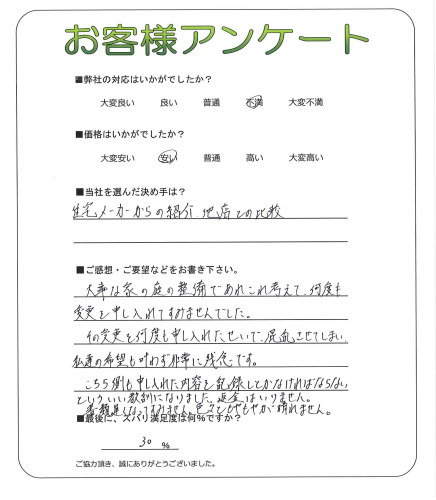 お客様アンケート
■弊社の対応はいかがでしたか？
大変良い 良い 普通 不満 大変不満
■価格はいかがでしたか？
大変安い 安い 普通 高い 大変高い
■当社を選んだ決め手は？
住宅メーカーからの紹介、他店との比較
■ご感想・ご要望などをお書き下さい。
大事な家の庭の整備であれこれ考えて、何度も
変更を申し入れてすみませんでした。
その変更を何度も申し入れたせいで、混乱させてしまい、
私達の希望も叶わず非常に残念です。
こちら側も申し入れた内容を記録しとかなければならない
といういい教訓になりました。返金はいりません。
書類遅くなってすみません。色々ともやもやが晴れません。
■最後に、ズバリ満足度は何％ですか？
30 ％
ご協力頂き、誠にありがとうございました。